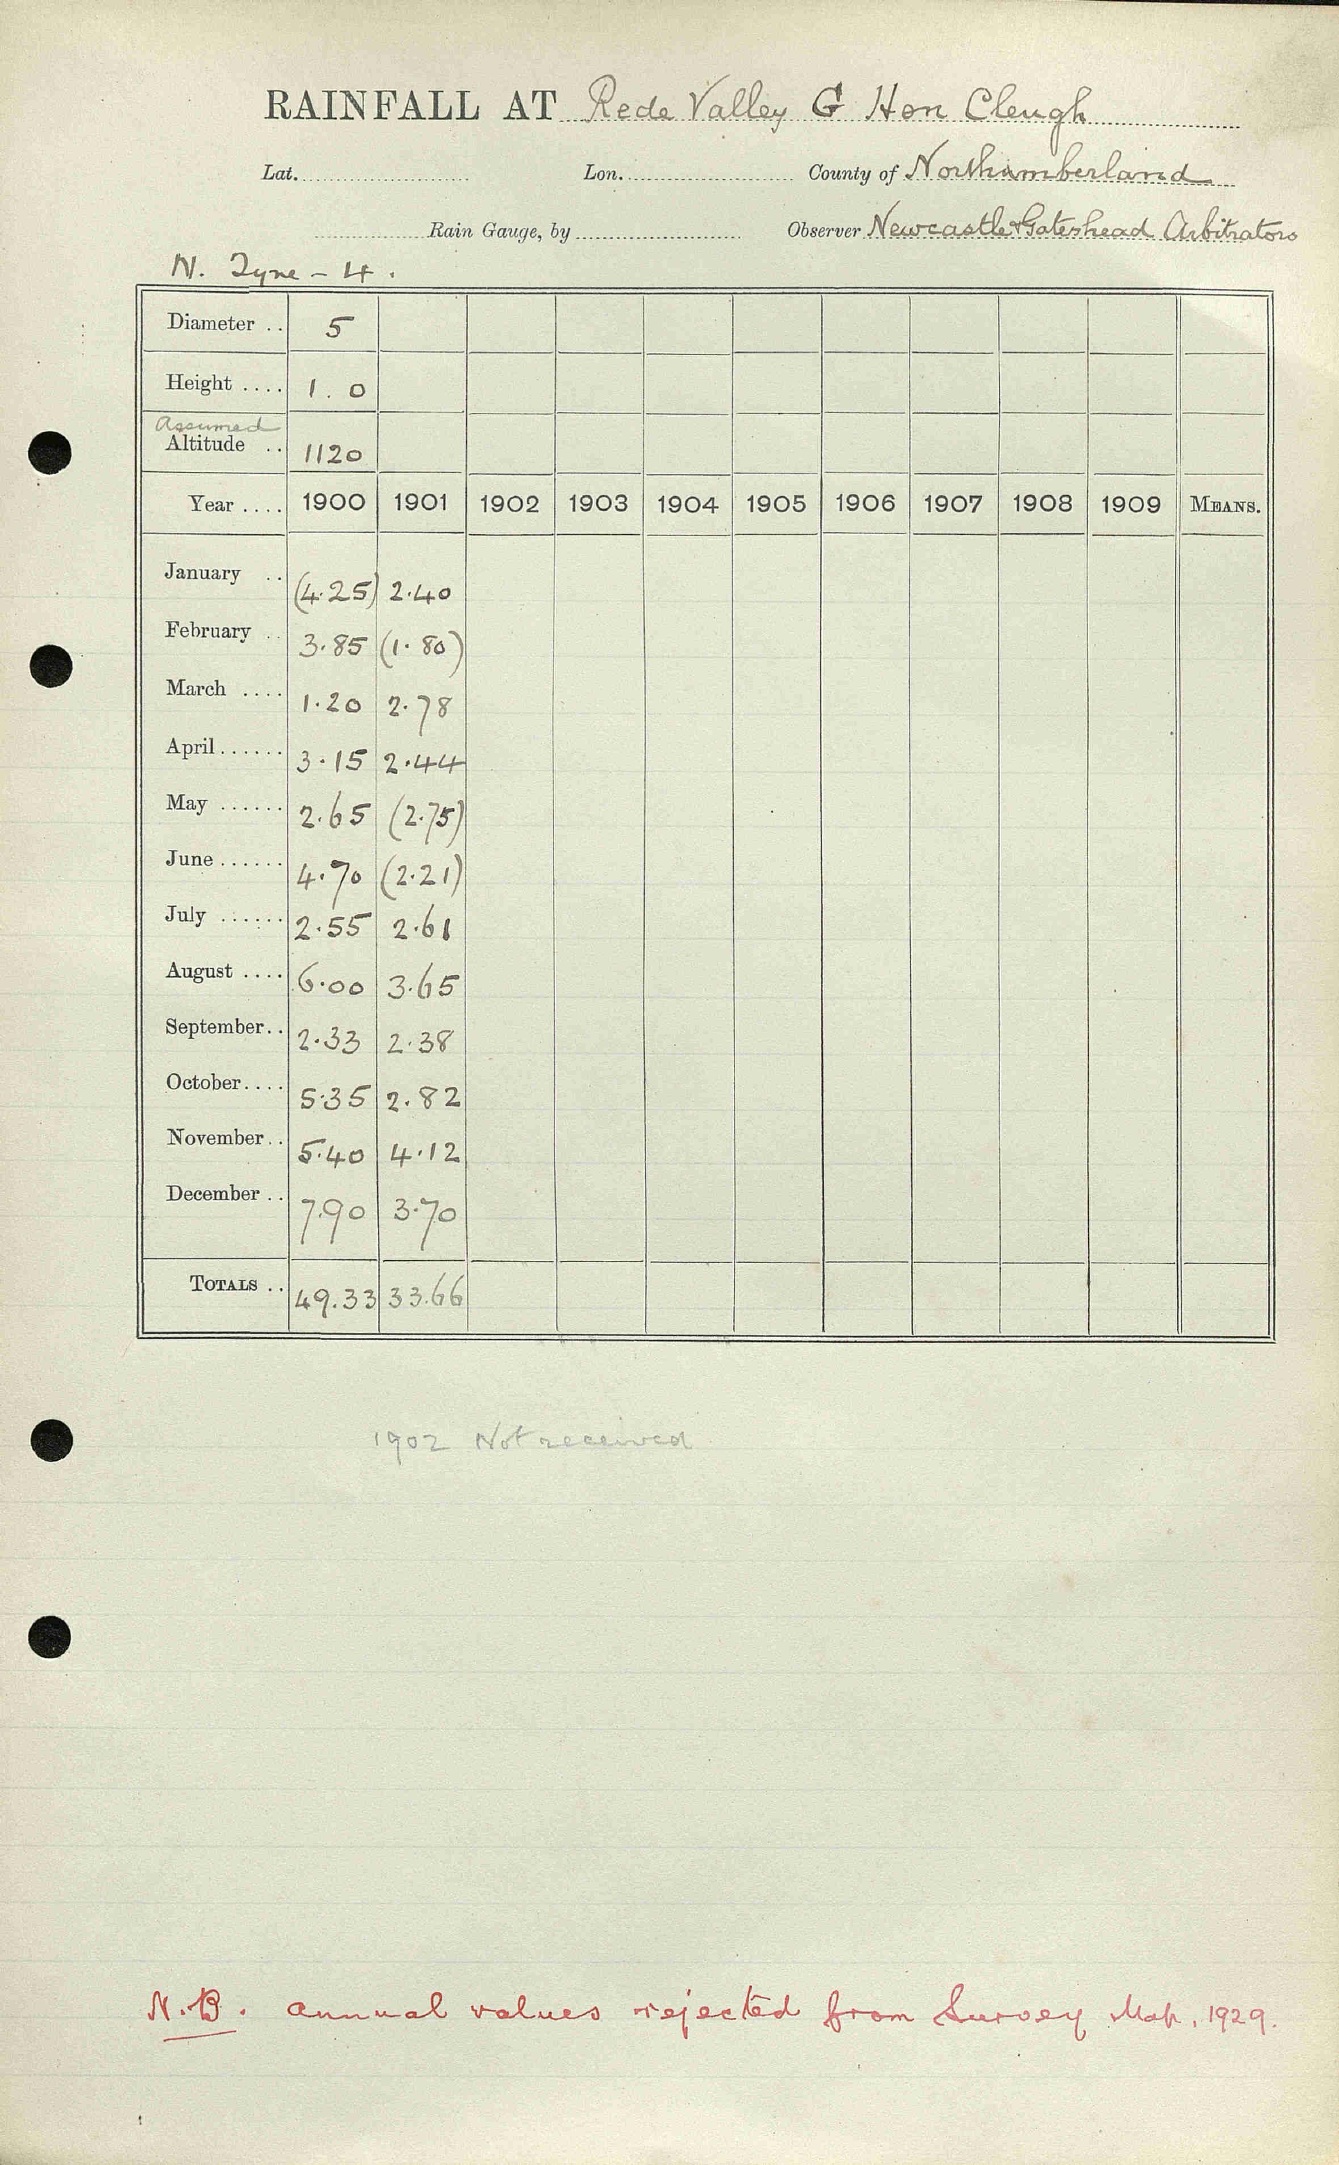 RAINFALL AT Rede Valley G Hon Cleugh
Lat. Lon. County of Northumberland
Rain Gauge, by Observer Newcastle & Gateshead Arbitrators
N. Tyne - 4.
Diameter .. 5
Height .... 1.0
Assumed
Altitude .. 1120
Year .... 1900 1901 1902 1903 1904 1905 1906 1907 1908 1909 MEANS.
January .. (4.25) 2.40
February .. 3.85 (1.80)
March .... 1.20 2.78
April...... 3.15 2.44
May ...... 2.65 (2.75)
June ...... 4.70 (2.21)
July ...... 2.55 2.61
August .... 6.00 3.65
September.. 2.33 2.38
October.... 5.35 2.82
November.. 5.40 4.12
December .. 7.90 3.70
TOTALS .. 49.33 33.66
1902 Not received
N.B. annual values rejected from Survey Map, 1929.